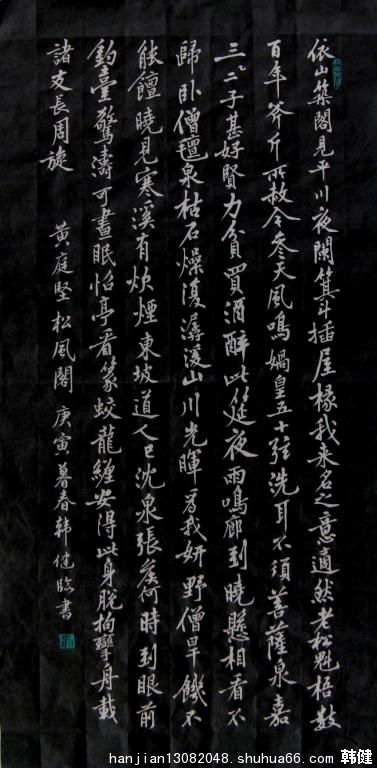 依山築閣見平川夜闌箕斗插屋椽我来名之意適然老松魁梧數
百年斧斤所赦今參天風鳴媧皇五十弦洗耳不須菩薩泉嘉
三二子甚好賢力貧買酒醉此筵夜雨鳴廊到曉懸相看不
歸卧僧氊泉枯石燥復潺湲山川光暉為我妍野僧旱饑不
能饘曉見寒溪有炊煙東坡道人已沈泉張侯何時到眼前
釣臺驚濤可晝眠怡亭看篆蛟龍纏安得此身脫拘攣舟載
諸友長周旋 黄庭堅松風閣 庚寅暮春韩健臨書
hanjian13082048.shuhua66.com 韩健